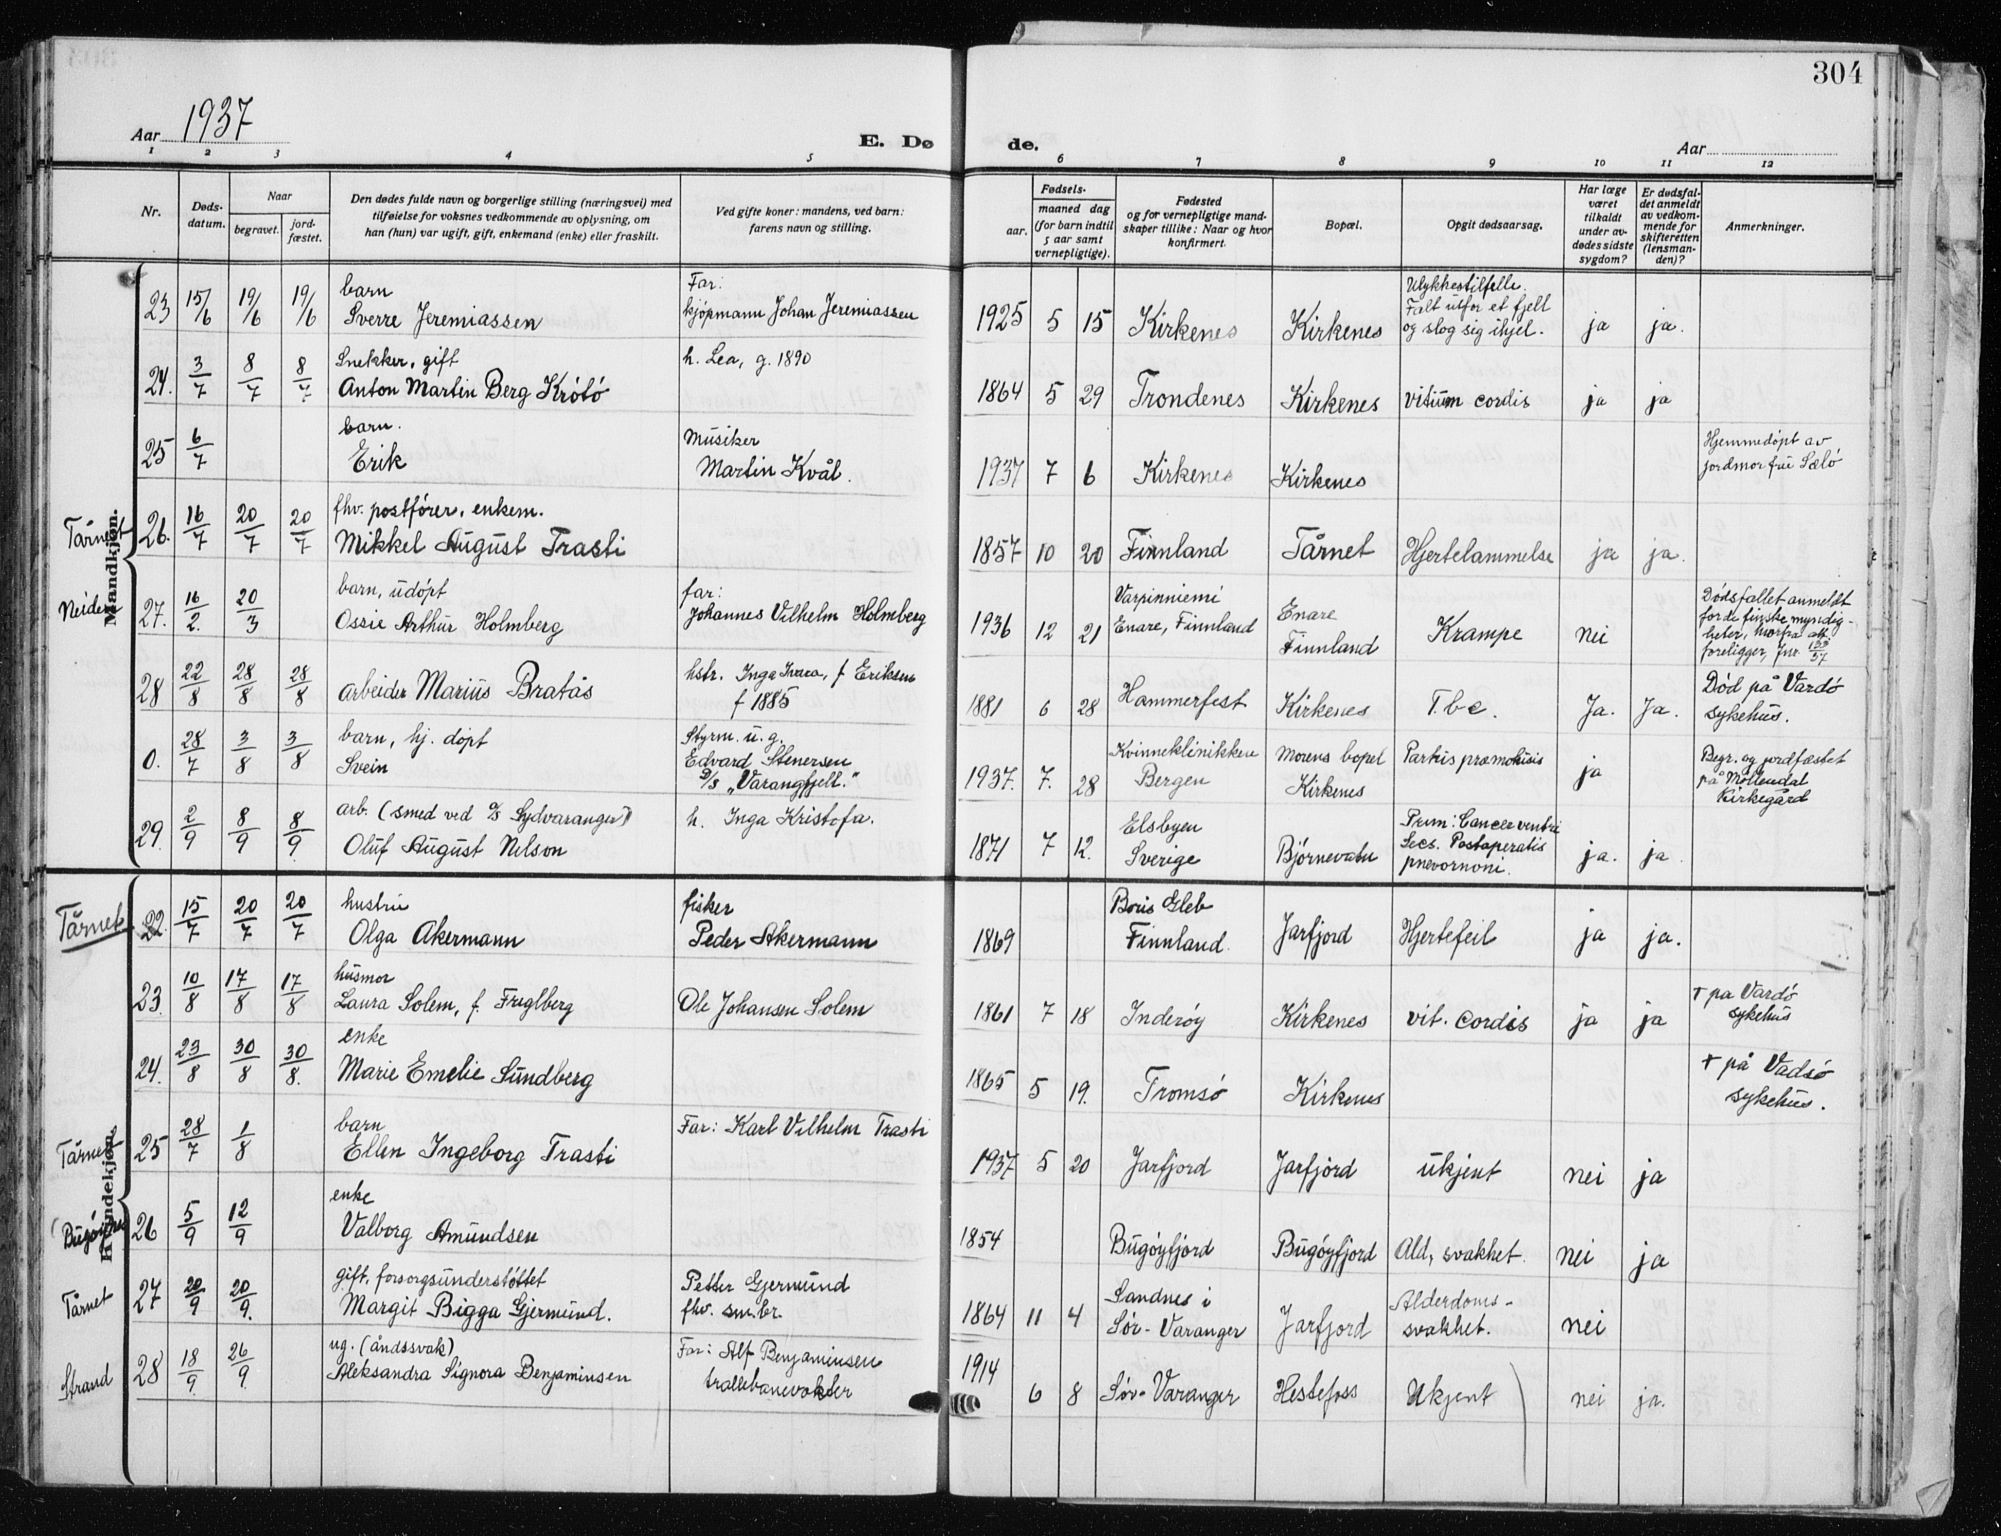 304
Aar 1937
E. Dø de.
Aar
1 2 3 4 5 6 7 8 9 10 11 12
Nr.
Døds-
datum.
Naar
begravet.
jord-
fæstet.
Den dødes fulde navn og borgerlige stilling (næringsvei) med
tilføielse for voksnes vedkommende av oplysning, om
han (hun) var ugift, gift, enkemand (enke) eller fraskilt.
Ved gifte koner: mandens, ved barn:
farens navn og stilling.
Fødsels-
aar.
maaned dag
(for barn indtil
5 aar samt
vernepligtige).
Fødested
og for vernepligtige mand-
skaper tillike: Naar og hvor
konfirmert.
Bopæl.
Opgit dødsaarsag.
Har læge
været
tilkaldt
under av-
dødes sidste
sygdom?
Er dødsfal-
det anmeldt
av vedkom-
mende for
skifteretten
(lensman-
den)?
Anmerkninger.
Mandkjøn.
23 15/6 19/6 19/6
barn
Sverre Jeremiassen
Far:
kjøpmann Johan Jeremiassen
1925 5 15 Kirkenes Kirkenes
Ulykkestilfelle.
Falt utfor et fjell
og slog sig ihjel.
ja ja.
24. 3/7 8/7 8/7
Snekker, gift
Anton Martin Berg Krötö
h. Lea, g. 1890
1864 5 29 Trondenes Kirkenes vitium cordis ja ja
25 6/7
barn.
Erik
Musiker
Martin Kvål.
1937 7 6 Kirkenes Kirkenes
Hjemmedöpt av
jordmorfrue Sælö
Tårnet 26. 16/7 20/7 20/7
fhv. postförer, enkem.
Mikkel August Trasti
1857 10 20 Finnland Tårnet Hjertelammelse ja ja.
Neiden 27. 16/2. 20/3
barn, udöpt
Ossie Arthur Holmberg
far:
Johannes Vilhelm Holmberg
1936 12 21
Varpinniemi
Enare, Finnland
Enare
Finnland
Krampe nei
Dödsfallet anmeldt
for de finske myndig-
heter, hvorfra att.
foreligger, Jnr.
28 22/8 28/8 28/8
arbeider Marius Bratås
hstr. Inga f Eriksen
f 1885
1881 6 28 Hammerfest Kirkenes T.b.c. Ja. Ja.
Död på Vardö
sykehus.
0. 28/7 3/8 3/8
barn, hj. döpt
Svein
Styrm. u. g.
Edvard Stenersen
D/s „Varangfjell."
1937. 7. 28
Kvinneklinikken
Bergen
Morens bopel
Kirkenes
Partus ja
Begr. og jordfæstet
på Möllendal
Kirkegård
29. 2/9 8/9 8/9.
arb. (smed ved a/s Sydvaranger)
Oluf August Nelson
h. Inga Kristofa.
1871 7 12.
Elsbyen
Sverige
Björnevatn
Prim: Cancer ventri
Secs. Postoperatis
pnevornoni.
ja. ja
Kvindekjøn.
Tårnet 22. 15/7 20/7 20/7
hustru
Olga Akermann
fisker
Peder Akermann
1869
Boris Gleb
Finnland.
Jarfjord Hjertefeil ja ja.
23. 10/8 17/8 17/8
husmor
Laura Solem, f.
Ole Johansen Solem
1861 7 18 Inderöy Kirkenes vit. cordis ja ja
+ pa Vardö
sykehus
24. 23/8 30/8 30/8.
enke
Marie Emelie Sundberg
1865 5 19. Tromsö Kirkenes
+ på Vadsö
sykehus.
Tårnet 25 28/7 1/8
barn
Ellen Ingeborg Trasti
Far: Karl Vilhelm Trasti
1937 5 20 Jarfjord Jarfjord ukjent nei ja
Bugöynes 26 5/9 12/9
enke
Valborg Amundsen
1854 Bugöyfjord Bugöyfjord Ald, svakhet. nei ja
Tårnet 27 20/9 20/9.
gift, forsorgsunderstöttet
Margit Bigga Gjermund.
Petter Gjermund
fhv. sm.br.
1864 11 4
Sandnes i
Sör-Varanger
Jarfjord
Alderdoms-
svakhet.
nei
Strand 28 18/9. 26/9.
ug. (åndssvak)
Aleksandra Signora Benjaminsen
Far: Alf Benjaminsen
trallebanevokter
1914 6 8 Sör-Varanger Hestefoss Ukjent nei ja.